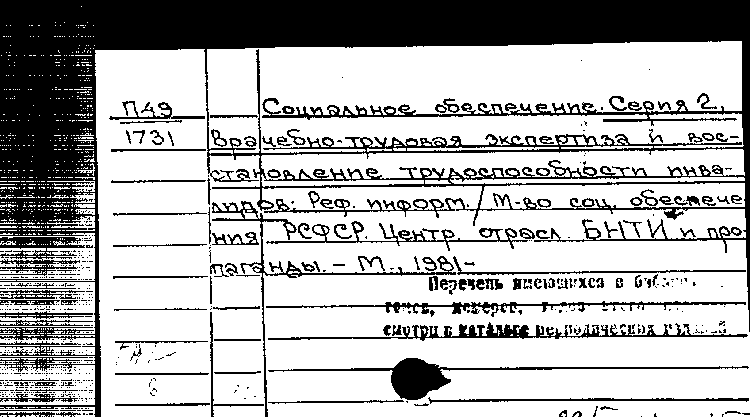 П49 Социальное обеспечение. Серия 2,
1731 Врачебно-трудовая экспертиза и вос-
становление трудоспособности инва-
лидов: Реф. информ. / М-во соц. обеспече
ния РСФСР. Центр. отрасл. БНТИ и про-
паганды. - М., 1981-
Перечень имеющихся в
номеров,
смотри в каталоге периодических